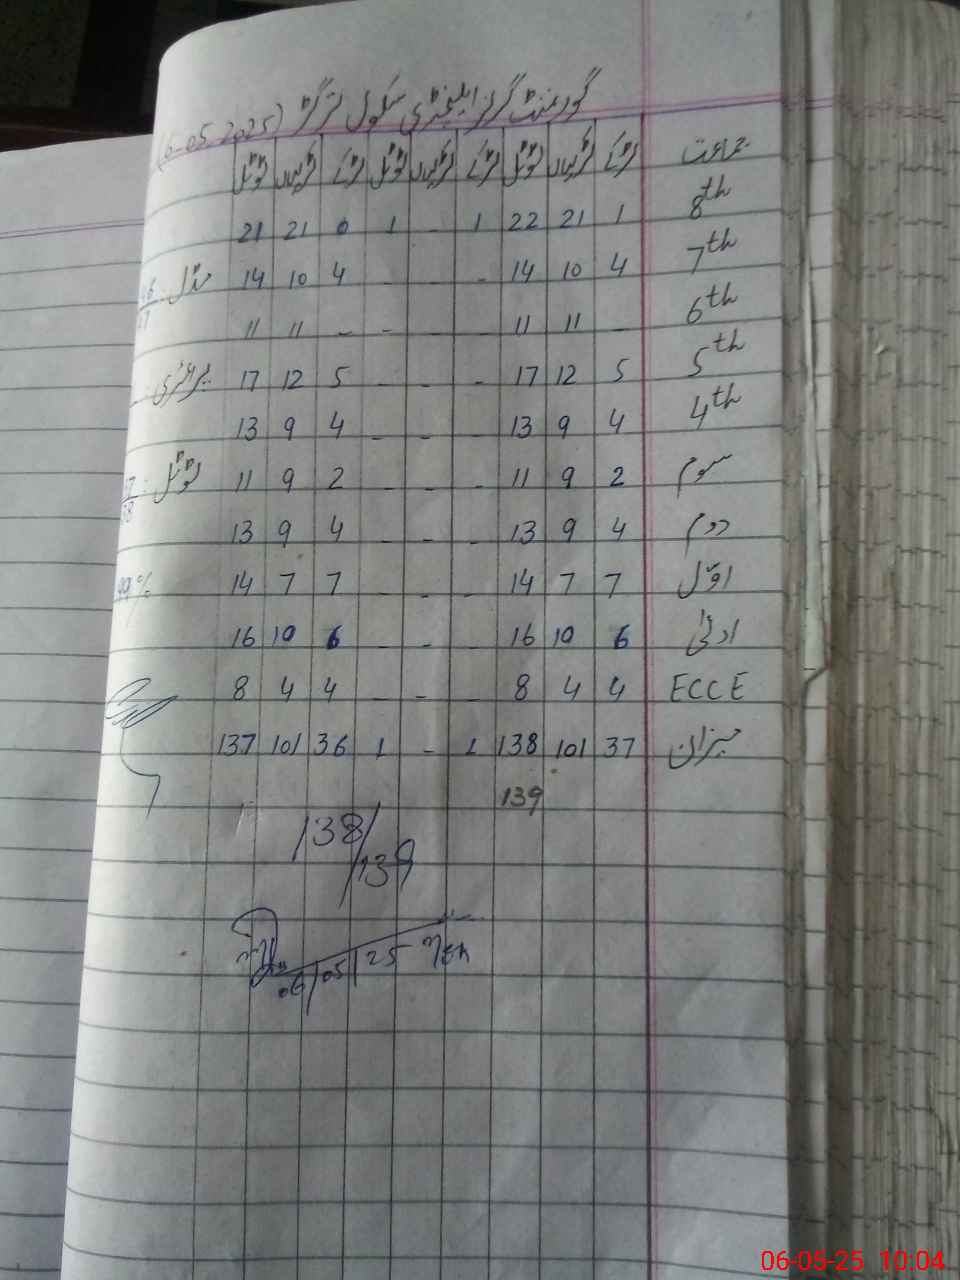 گورنمنٹ گرلز ایلیمنٹری سکول (6-05-2025)
جماعت لڑکے لڑکیاں ٹوٹل لڑکے لڑکیاں ٹوٹل لڑکے لڑکیاں ٹوٹل
8th 1 21 22 1 - 1 0 21 21
7th 4 10 14 - - - 4 10 14 مڈل
6th - 11 11 - - - - 11 11
5th 5 12 17 - - - 5 12 17 پرائمری
4th 4 9 13 - - - 4 9 13
سوم 2 9 11 - - - 2 9 11 ٹوٹل
دوم 4 9 13 - - - 4 9 13
اول 7 7 14 - - - 7 7 14 99%
ادنیٰ 6 10 16 - - - 6 10 16
ECCE 4 4 8 - - - 4 4 8
میزان 37 101 138 1 - 1 36 101 137
139
138/139
06/05/25
06-05-25 10:04